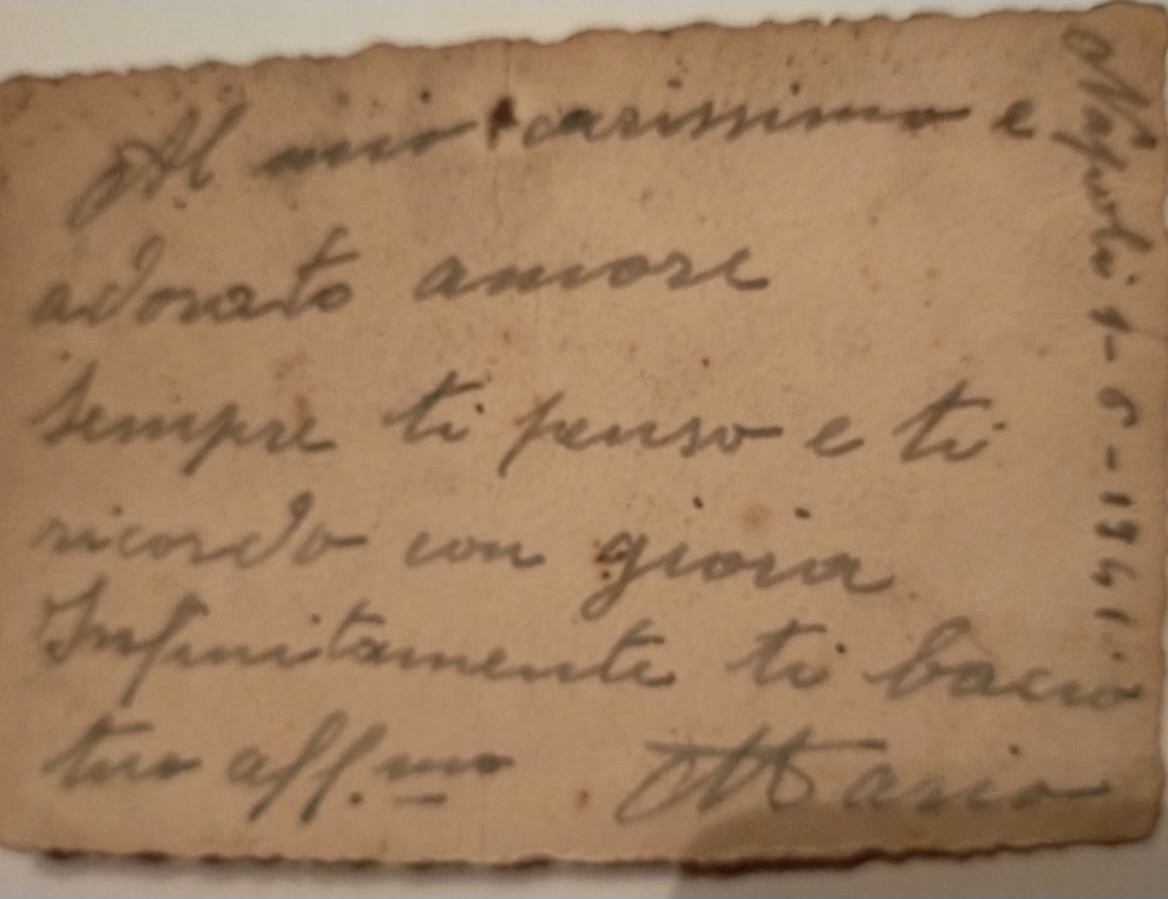 Al mio carissimo e
adorato amore
sempre ti penso e ti
ricordo con gioia
Infinitamente ti bacio
tuo aff.mo Mario
Napoli 1-6-1941.